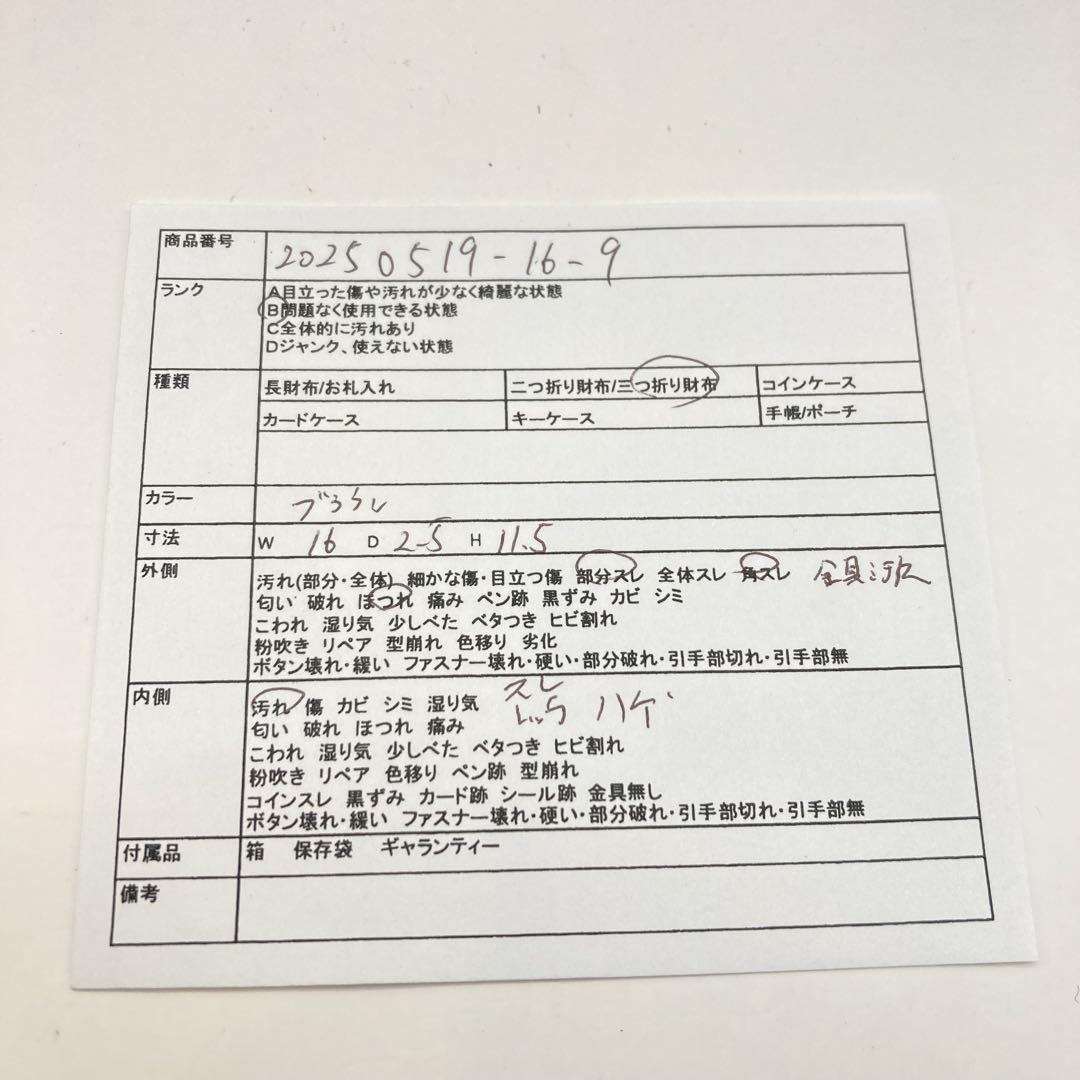 商品番号 20250519-16-9
ランク A目立った傷や汚れが少なく綺麗な状態
B問題なく使用できる状態
C全体的に汚れあり
Dジャンク、使えない状態
種類 長財布/お札入れ 二つ折り財布/三つ折り財布 コインケース
カードケース キーケース 手帳/ポーチ
カラー ブラウン
寸法 W 16 D 2.5 H 11.5
外側 汚れ(部分・全体) 細かな傷・目立つ傷 部分スレ 全体スレ 角スレ 金具
匂い 破れ ほつれ 痛み ペン跡 黒ずみ カビ シミ
こわれ 湿り気 少しべた ベタつき ヒビ割れ
粉吹き リペア 型崩れ 色移り 劣化
ボタン壊れ・緩い ファスナー壊れ・硬い・部分破れ・引手部切れ・引手部無
内側 スレ
汚れ 傷 カビ シミ 湿り気 ハゲ
匂い 破れ ほつれ 痛み
こわれ 湿り気 少しべた ベタつき ヒビ割れ
粉吹き リペア 色移り ペン跡 型崩れ
コインスレ 黒ずみ カード跡 シール跡 金具無し
ボタン壊れ・緩い ファスナー壊れ・硬い・部分破れ・引手部切れ・引手部無
付属品 箱 保存袋 ギャランティー
備考